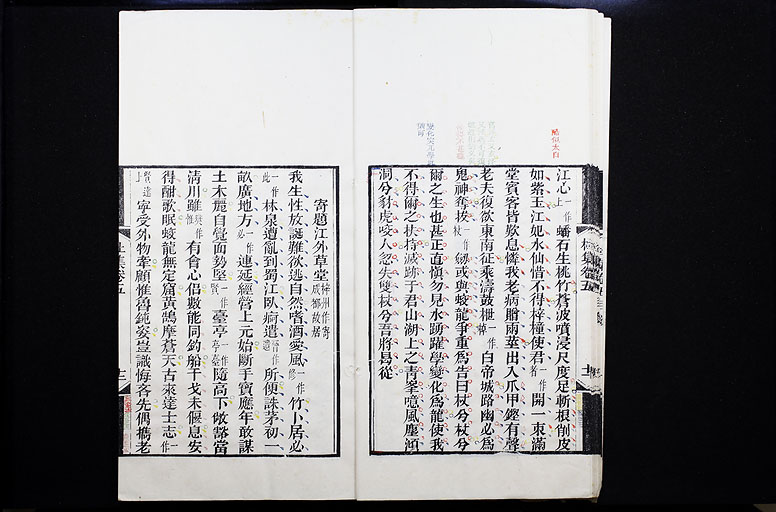 酷似太白
江心一作上蟠石生桃竹蒼波噴浸尺度足斬根削皮
如紫玉江妃水仙惜不得梓潼使君一作者開一束滿
堂賓客皆歎息憐我老病贈兩莖出入爪甲鏗有聲
老夫復欲東南征乘濤鼓枻一作棹白帝城路幽必為
鬼神奪拔一作杖劒或與蛟龍爭重為告曰杖兮杖兮
爾之生也甚正直慎勿見水踴躍學變化為龍使我
不得爾之扶持滅跡于君山湖上之青峯噫風塵澒
洞兮豺虎咬人忽失雙杖兮吾將曷從
杜集卷五
寄題江外草堂梓州作寄成都故居
我生性放誕難欲逃自然嗜酒愛風一作修竹卜居必
一作此林泉遭亂到蜀江臥痾遣所便誅茅初一
畝廣地方一作必連延經營上元始斷手寶應年敢謀
土木麗自覺面勢堅一作賢臺亭一作亭臺隨高下敞豁當
清川雖一作惟有會心侶數能同釣船干戈未偃息安
得酣歌眠蛟龍無定窟黃鵠摩蒼天古來達士志一作
賢達上寧受外物牽顧惟魯鈍姿豈識悔吝先偶攜老
杜集卷五